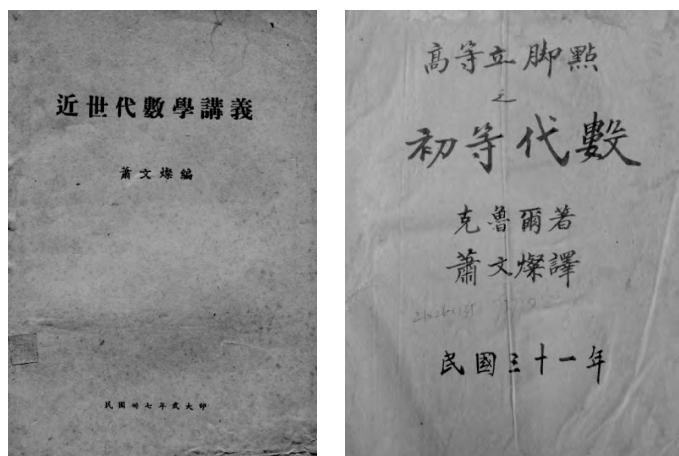 近世代數學講義
蕭文燦編
民國卅七年武大印
高等立脚點
之
初等代數
克魯爾著
蕭文燦譯
民國三十一年